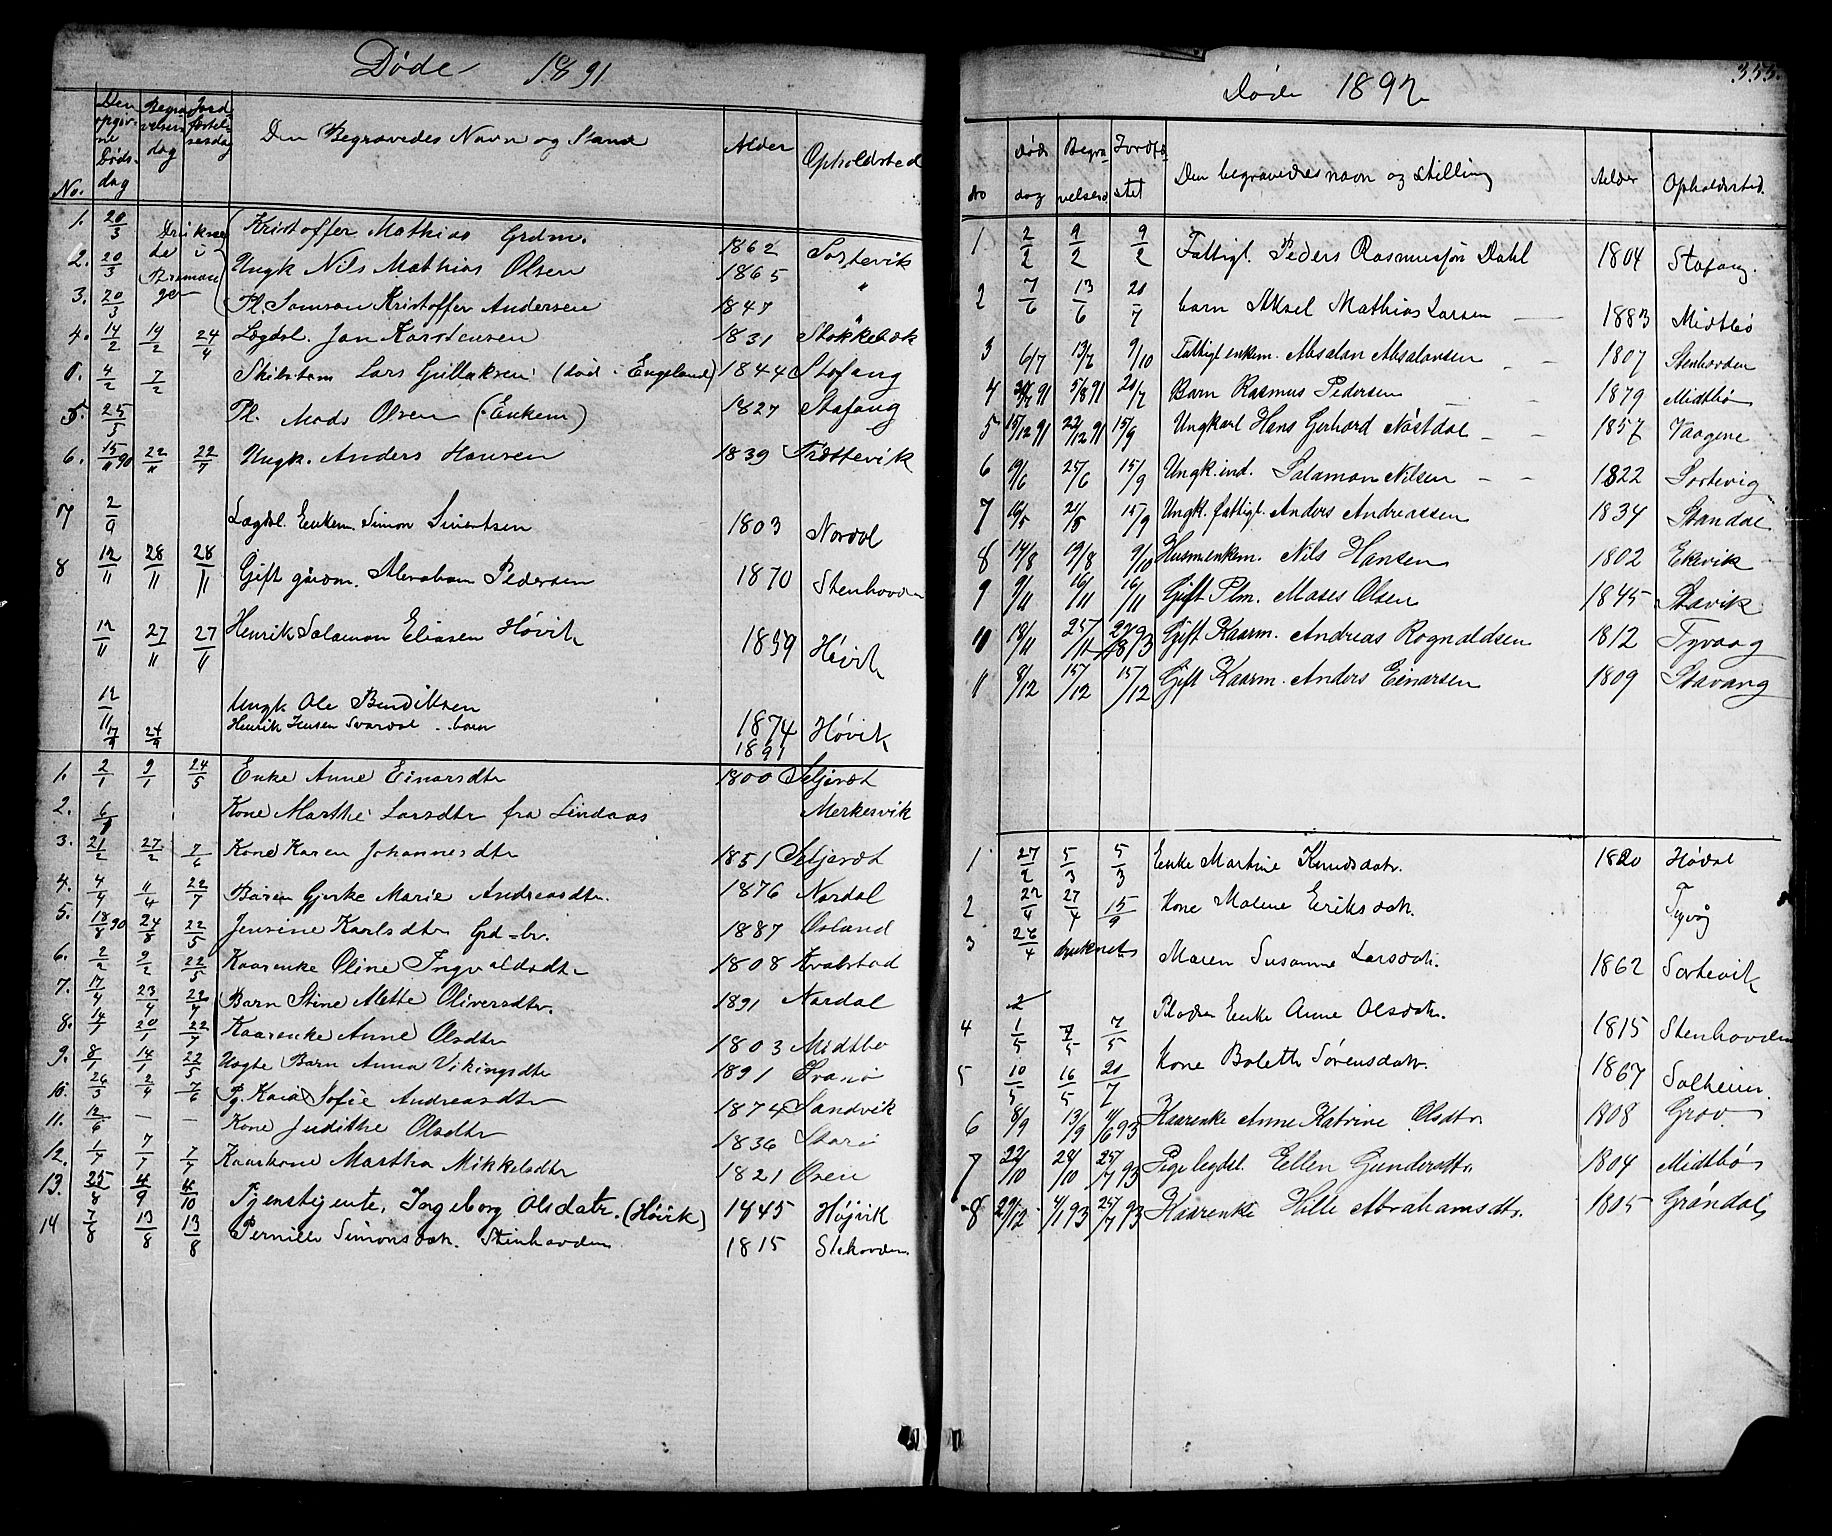 Døde 1891
No. Den opgivne Dødsdag Begravelsesdag Jordfæstelsesdag Den Begravedes Navn og Stand Alder Opholdsted
1. 20/3 Kristoffer Mathias Grdm. 1862 Sortevik
2. 20/3 Ungk Nils Mathias Olsen 1865 "
Druknede i Bremanger
3. 20/3 Pl. Samson Kristoffer Andersen 1847
4. 14/2 19/2 24/4 Lægdsl. Jan Karstensen 1831 Stokkebæk
4/2 7/2 Lars Gullaksen (død i Engeland) 1844 Stafang
5. 25/5 Pl. Mads Olsen (Enkem) 1827 Stafang
6. 15/11 90 22/11 22/7 Ungk. Anders Hansen 1839 Trættevik
7 2/9 Lægdsl. Enkem. Simon Sivertsen 1803 Nordal
8 12/11 28/11 28/11 Gift Abraham Pedersen 1870 Stenhovden
12/11 27/11 27/11 Henrik Salamon Eliasen Høvik 1859 Høvik
12/11 Ungk Ole Bendiksen 1874 Høvik
17/9 24/9 Henrik Jensen Svardal barn 1891
1. 2/1 9/1 24/5 Enke Anne Einarsdtr 1800 Seljevæt
2. 6/1 Kone Marthe Larsdtr fra Lindaas Merkesvik
3. 21/2 27/2 7/6 Kone Karen Johannesdtr 1851 Seljevæt
4. 4/4 11/4 22/7 Barn Gjerke Marie Andreasdtr. 1876 Nordal
5. 18/8 90 24/8 22/5 Jensine Karlsdtr Grd-br. 1887 Osland
6. 2/2 9/2 22/5 Kaarenke Oline Ingvaldsdtr 1808 Kvalstad
7. 17/4 23/4 22/7 Barn Stine Mette Oliversdtr. 1891 Nordal
8. 14/1 20/1 22/7 Kaarenke Anne Olsdtr 1803 Midtbø
9. 8/1 14/1 22/5 Uægte Barn Anna Vikingsdtr 1891 Svanø
10. 26/3 2/4 7/6 Pg. Kaia Sofie Andreasdtr 1874 Sandvik
11. 12/6 — — Kone Judithe Olsdtr 1836
12. 1/7 7/7 7/7 Kaarkone Martha Mikkelsdtr 1821 Oren
13. 25/8 4/9 4/10 Tjenstjente, Ingeborg Olsdatr. (Høvik) 1845 Højvik
14 7/8 13/8 13/8 Pernille Simonsdatr. Stenhovden 1815 Stehovden
355.
Døde 1892
No Døds dag Begravelsesd Jordfæstet Den begravedes navn og stilling Alder Opholdssted.
1 2/2 9/2 9/2 Fattigl. Peders Rasmussøn Dahl 1804 Stafang.
2 7/6 13/6 20/7 barn Aksel Mathias Larsen 1883 Midtbø
3 6/7 13/7 9/10 Fattigl enkem. Absalon Absalonsen 1807 Stenhovden
4 30/7 91 5/8 91 20/7 Barn Rasmus Pedersen 1879 Midtbø
5 15/12 91 22/12 91 15/9 Ungkarl Hans Gerhard Nøstdal 1857 Vaagene
6 19/6 25/6 15/9 Ungk. ind. Salamon Nilsen 1822 Sortevig
7 16/5 21/5 15/9 Ungk. fattigl. Anders Andreassen 1834 Standal
8 14/8 19/8 9/10 Husmenkm. Nils Hansen 1802 Ekevik
9 9/11 16/11 16/11 Gift Plm. Moses Olsen 1845 Stavik
10 18/11 25/11 Gift Kaarm. Andreas Rognaldsen 1812 Tyvaag
11 8/12 15/12 15/12 Gift Kaarm. Anders Einarsen 1809 Stavang
1 27/2 5/3 5/3 Enke Martine Knudsdatr. 1820 Hødal
2 22/4 27/4 15/9 Kone Malene Eriksdatr. Tyvåg
3 26/4 druknet Maren Susanne Larsdatr. 1862 Sortevik
4 1/5 7/5 7/5 Enke Anne Olsdatr. 1815 Stenhovden
5 10/5 16/5 20/7 Kone Bolette Sørensdatr. 1867 Solheim.
6 8/9 13/9 4/6 93 Kaarenke Anne Katrine Olsdtr 1808 Grov
7 22/10 24/10 25/7 93 Pige legdsl. Ellen Gundersdtr. 1804 Midtbø
8 29/12 4/1 93 25/7 93 Kaarenke Hille Abrahamsdtr. 1805 Grøndal